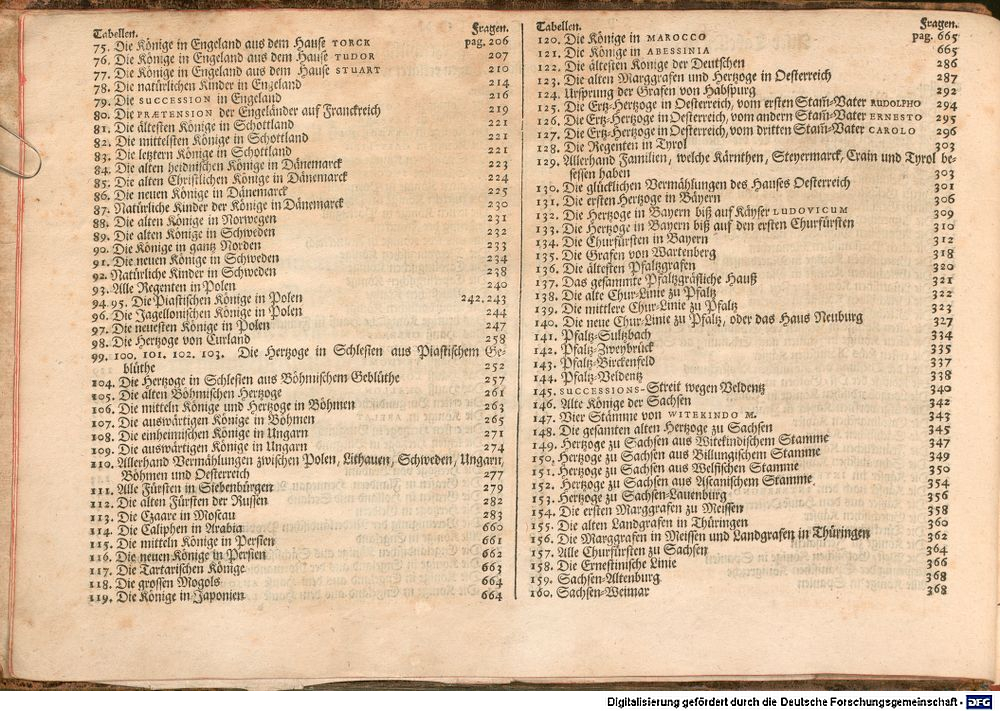 Tabellen. Fragen.
75. Die Könige in Engeland aus dem Hause TORCK pag. 206
76. Die Könige in Engeland aus dem Hause TUDOR 207
77. Die Könige in Engeland aus dem Hause STUART 210
78. Die natürlichen Kinder in Engeland 214
79. Die SUCCESSION in Engeland 216
80. Die PRÆTENSION der Engeländer auf Franckreich 219
81. Die ältesten Könige in Schottland 221
82. Die mittelsten Könige in Schottland 221
83. Die letztern Könige in Schottland 221
84. Die alten heidnischen Könige in Dänemarck 223
85. Die alten Christlichen Könige in Dänemarck 224
86. Die neuen Könige in Dänemarck 225
87. Natürliche Kinder der Könige in Dänemarck 230
88. Die alten Könige in Norwegen 231
89. Die alten Könige in Schweden 232
90. Die Könige in gantz Norden 233
91. Die neuen Könige in Schweden 234
92. Natürliche Kinder in Schweden 238
93. Alle Regenten in Polen 240
94. 95. Die Piastischen Könige in Polen 242. 243
96. Die Jagellonischen Könige in Polen 244
97. Die neuesten Könige in Polen 247
98. Die Hertzoge von Curland 258
99. 100. 101. 102. 103. Die Hertzoge in Schlesien aus Piastischem Ge-
blüthe 252
104. Die Hertzoge in Schlesien aus Böhmischem Geblüthe 257
105. Die alten Böhmischen Hertzoge 261
106. Die mitteln Könige und Hertzoge in Böhmen 263
107. Die auswärtigen Könige in Böhmen 265
108. Die einheimischen Könige in Ungarn 271
109. Die auswärtigen Könige in Ungarn 274
110. Allerhand Vermählungen zwischen Polen, Lithauen, Schweden, Ungarn,
Böhmen und Oesterreich 277
111. Alle Fürsten in Siebenbürgen 279
112. Die alten Fürsten der Russen 282
113. Die Czaare in Moscau 283
114. Die Caliphen in Arabia 660
115. Die mitteln Könige in Persien 661
116. Die neuen Könige in Persien 662
117. Die Tartarischen Könige 663
118. Die grossen Mogols 664
119. Die Könige in Japonien 664
Tabellen. Fragen.
120. Die Könige in MAROCCO pag. 665
121. Die Könige in ABESSINIA 665
122. Die ältesten Könige der Deutschen 286
123. Die alten Marggrafen und Hertzoge in Oesterreich 287
124. Ursprung der Grafen von Habspurg 292
125. Die Ertz-Hertzoge in Oesterreich, vom ersten Stam̃-Vater RUDOLPHO 294
126. Die Ertz-Hertzoge in Oesterreich, vom andern Stam̃-Vater ERNESTO 295
127. Die Ertz-Hertzoge in Oesterreich, vom dritten Stam̃-Vater CAROLO 296
128. Die Regenten in Tyrol 303
129. Allerhand Familien, welche Kärnthen, Steyermarck, Crain und Tyrol be-
sessen haben 303
130. Die glücklichen Vermählungen des Hauses Oesterreich 301
131. Die ersten Hertzoge in Bäyern 306
132. Die Hertzoge in Bayern biß auf Käyser LUDOVICUM 309
133. Die Hertzoge in Bayern biß auf den ersten Churfürsten 310
134. Die Churfürsten in Bayern 312
135. Die Grafen von Wartenberg 318
136. Die ältesten Pfaltzgrafen 320
137. Das gesammte Pfaltzgräfliche Hauß 321
138. Die alte Chur-Linie zu Pfaltz 322
139. Die mittlere Chur-Linie zu Pfaltz 323
140. Die neue Chur-Linie zu Pfaltz, oder das Haus Neuburg 327
141. Pfaltz-Sultzbach 334
142. Pfaltz-Zweybrück 335
143. Pfaltz-Birckenfeld 337
144. Pfaltz-Veldentz 338
145. SUCCESSIONS-Streit wegen Veldentz 340
146. Alte Könige der Sachsen 342
147. Vier Stämme von WITEKINDO M. 343
148. Die gesamten alten Hertzoge zu Sachsen 345
149. Hertzoge zu Sachsen aus Witekindischem Stamme 347
150. Hertzoge zu Sachsen aus Billungischem Stamme 349
151. Hertzoge zu Sachsen aus Welfischem Stamme 350
152. Hertzoge zu Sachsen aus Ascanischem Stamme 354
153. Hertzoge zu Sachsen-Lauenburg 356
154. Die ersten Marggrafen zu Meissen 358
155. Die alten Landgrafen in Thüringen 360
156. Die Marggrafen in Meissen und Landgrafen in Thüringen 362
157. Alle Churfürsten zu Sachsen 364
158. Die Ernestinische Linie 366
159. Sachsen-Altenburg 368
160. Sachsen-Weimar 368
Digitalisierung gefördert durch die Deutsche Forschungsgemeinschaft - DFG